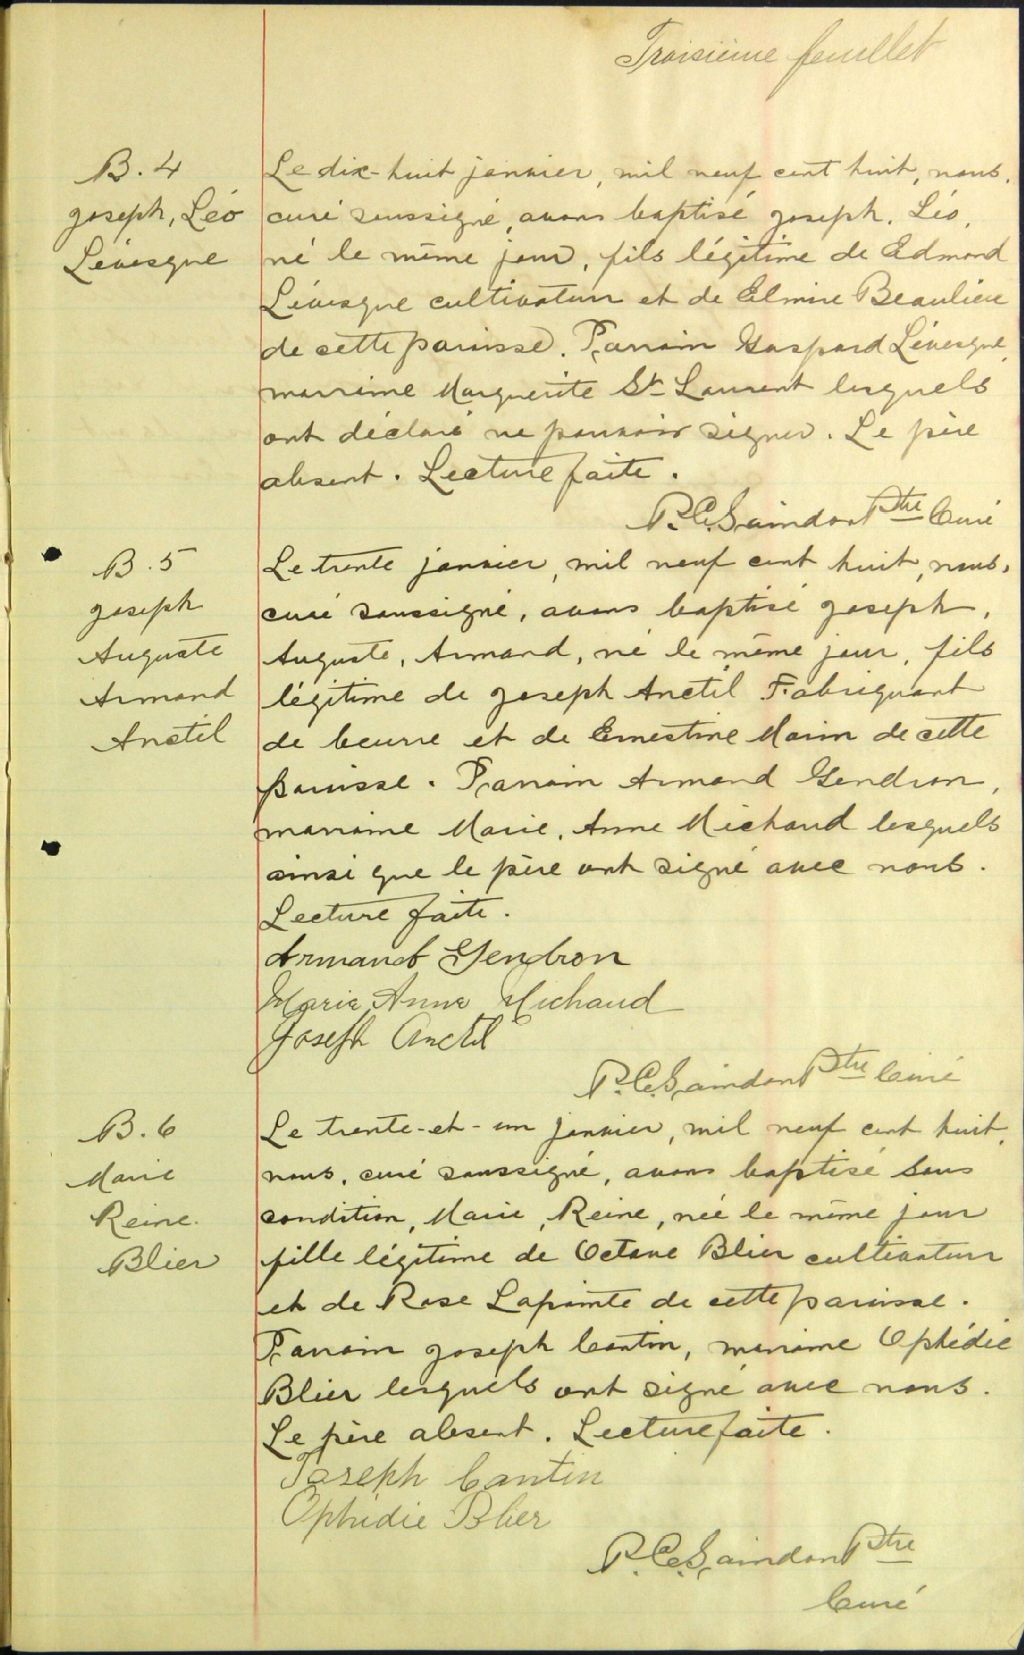 Troisième feuillet
B. 4
Joseph, Léo
Lévesque
Le dix-huit janvier, mil neuf cent huit, nous,
curé soussigné, avons baptisé Joseph, Léo,
né le même jour, fils légitime de Edmond
Lévesque cultivateur et de Elmire Beaulieu
de cette paroisse. Parrain Gaspard Lévesque,
marraine Marguerite St Laurent lesquels
ont déclaré ne pouvoir signer. Le père
absent. Lecture faite.
P. C. Saindon Ptre Curé
B. 5
Joseph
Auguste
Armand
Anctil
Le trente janvier, mil neuf cent huit, nous,
curé soussigné, avons baptisé Joseph,
Auguste, Armand, né le même jour, fils
légitime de Joseph Anctil Fabriquant
de beurre et de Ernestine Morin de cette
paroisse. Parrain Armand Gendron,
marraine Marie, Anne Michaud lesquels
ainsi que le père ont signé avec nous.
Lecture faite.
Armand Gendron
Marie Anne Michaud
Joseph Anctil
P. C. Saindon Ptre Curé
B. 6
Marie
Reine
Blier
Le trente-et-un janvier, mil neuf cent huit,
nous, curé soussigné, avons baptisé sous
condition, Marie, Reine, née le même jour
fille légitime de Octave Blier cultivateur
et de Rose Lapointe de cette paroisse.
Parrain Joseph Cantin, marraine Ophédie
Blier lesquels ont signé avec nous.
Le père absent. Lecture faite.
Joseph Cantin
Ophédie Blier
P. C. Saindon Ptre
Curé